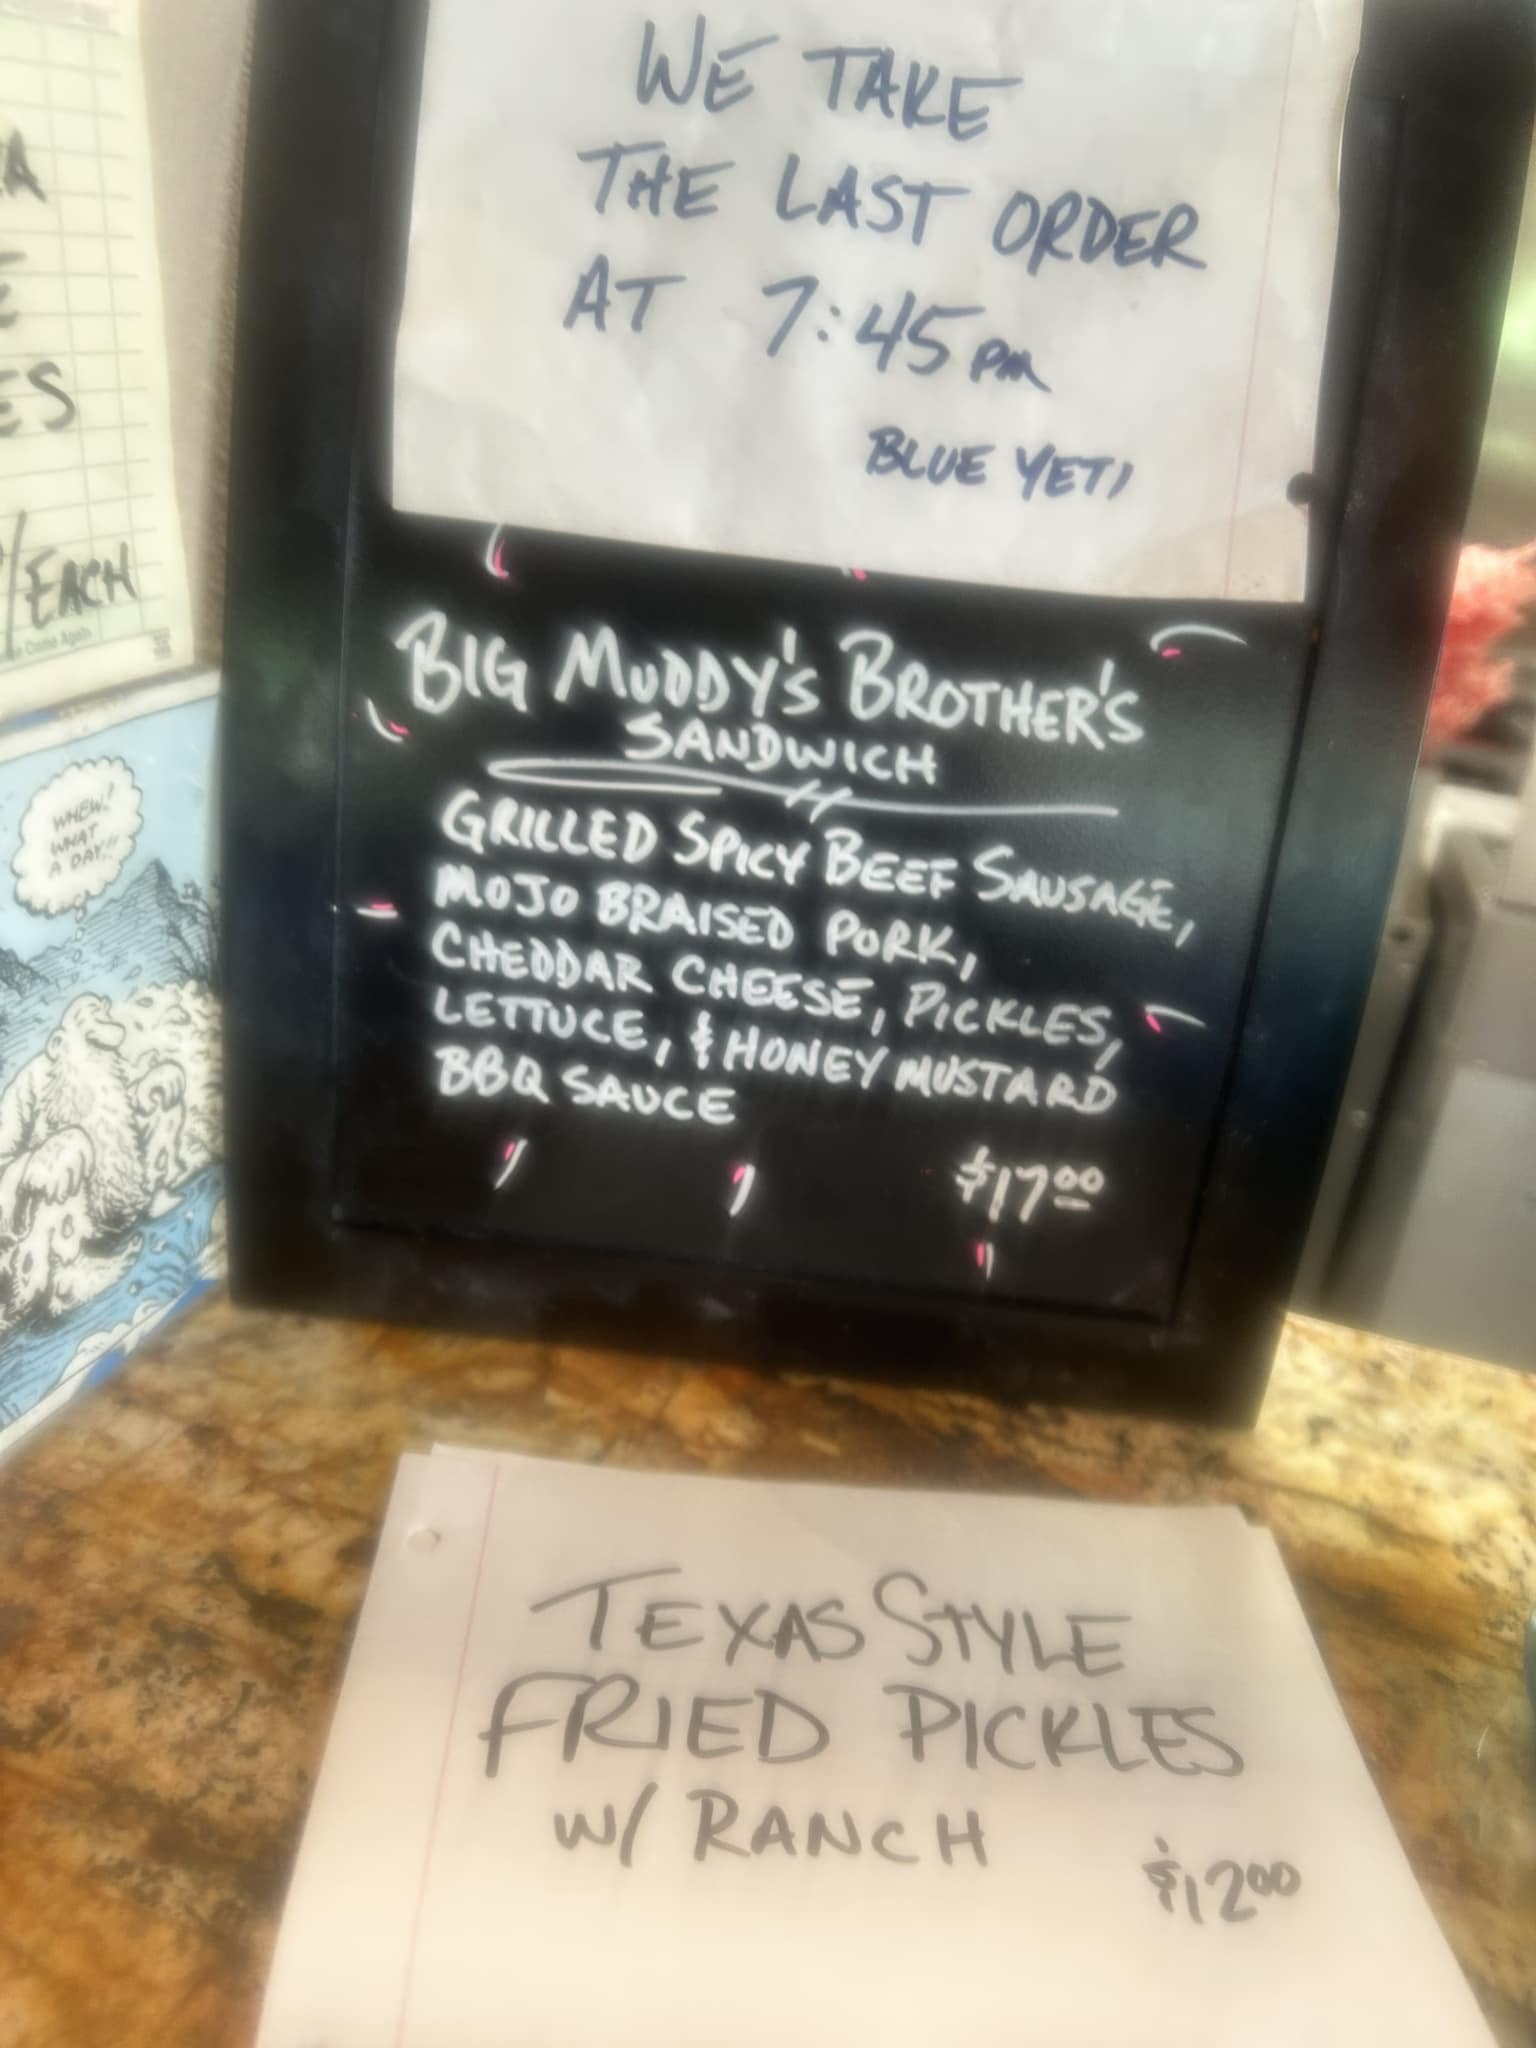 WE TAKE
THE LAST ORDER
AT 7:45 PM
BLUE YETI
/EACH
Come Again
WHEW!
WHAT
A DAY!!
BIG MUDDY'S BROTHER'S
SANDWICH
GRILLED SPICY BEEF SAUSAGE,
MOJO BRAISED PORK,
CHEDDAR CHEESE, PICKLES,
LETTUCE, & HONEY MUSTARD
BBQ SAUCE
$17.00
TEXAS STYLE
FRIED PICKLES
W/ RANCH
$12.00